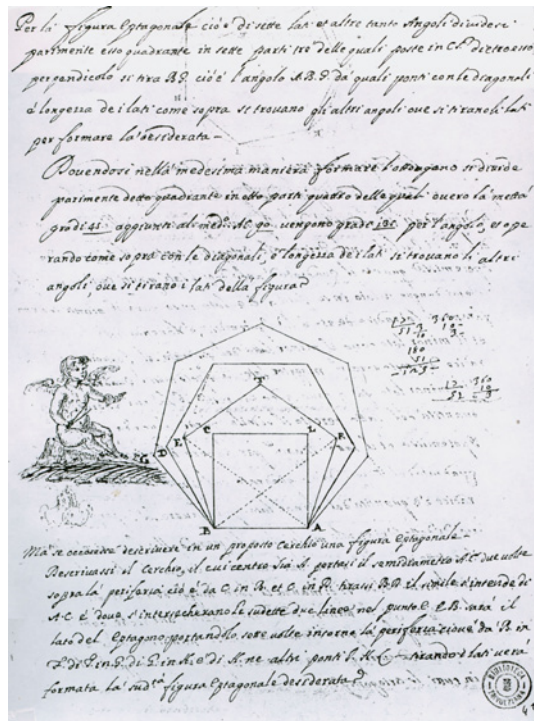 Per la figura Eptagonale cioè di sette lati et altre tanto Angoli dividesi
parimente esso quadrante in sette parti tre delle quali poste in C.F. dietro esso
perpendicolo si tira B.D. cioè l'angolo A.B.D. da quali ponti con le diagonali
è longezza de i lati come sopra si trovano gli altri angoli ove si tirano li lati
per formare la desiderata
Dovendosi nella medesima maniera formare l'ottogono si divide
parimente detto quadrante in otto parti quatro delle quali overo la mettà
gradi 45 aggiunti al med.º AC 90 vengono gradi 135 per l'angolo, et ope
rando come sopra con le diagonali, è longezza de i lati si trovano li altri
angoli, ove si tirano i lati della figura
360
180
360
T
C L
G D E R
B A
Ma se occorre descrivere in un proposto Cerchio una figura Eptagonale
Descrivassi il Cerchio, il cui centro sia A. portasi il semidiametro A.C. due volte
sopra la periferia cioè da C. in B. et C. in D. tirassi B.D. il simile s'intende di
A.C. è dove s'intersecherano le sudette due linee nel punto E. E.B. sarà il
lato del Eptagono portandolo sette volte intorno la periferia cioè da B. in
F. di F. in G. di G. in H. è di H. ne altri ponti I. K. L. tirando i lati verà
formata la sud.ta figura Eptagonale desiderata
BIBLIOTECA
TRIVULZIANA